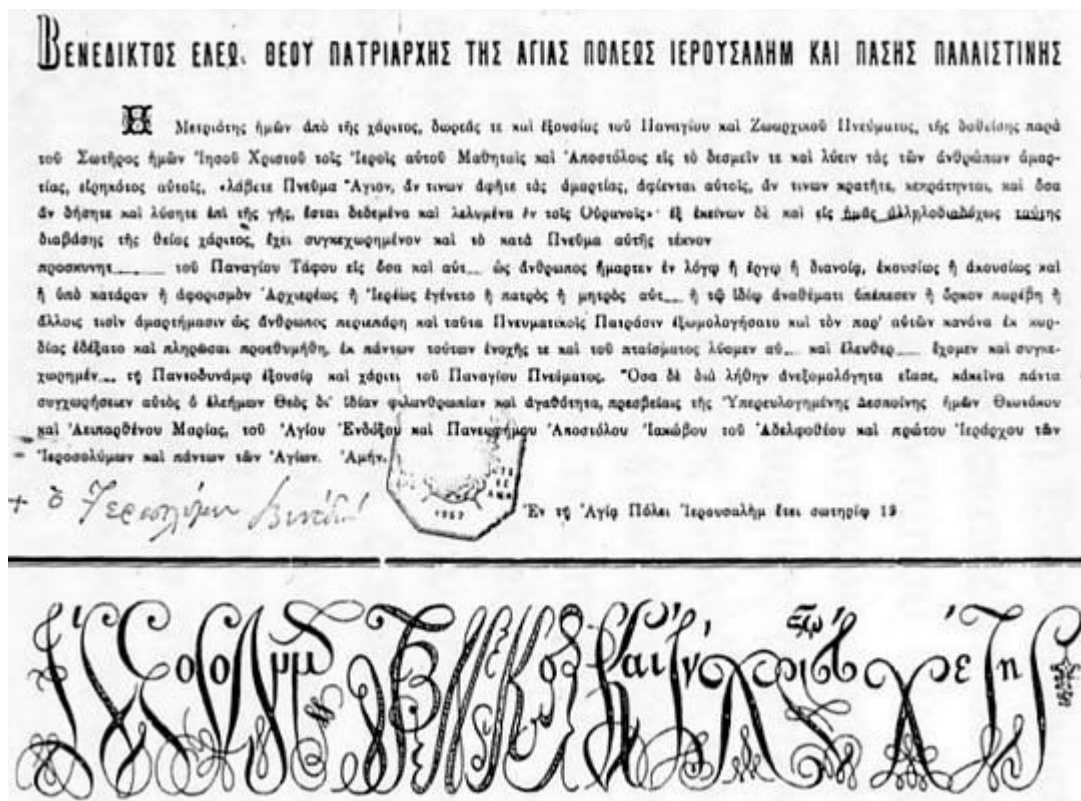 ΒΕΝΕΔΙΚΤΟΣ ΕΛΕΩ. ΘΕΟΥ ΠΑΤΡΙΑΡΧΗΣ ΤΗΣ ΑΓΙΑΣ ΠΟΛΕΩΣ ΙΕΡΟΥΣΑΛΗΜ ΚΑΙ ΠΑΣΗΣ ΠΑΛΑΙΣΤΙΝΗΣ
Η Μετριότης ἡμῶν ἀπὸ τῆς χάριτος, δωρεᾶς τε καὶ ἐξουσίας τοῦ Παναγίου καὶ Ζωαρχικοῦ Πνεύματος, τῆς δοθείσης παρὰ
τοῦ Σωτῆρος ἡμῶν Ἰησοῦ Χριστοῦ τοῖς Ἱεροῖς αὐτοῦ Μαθηταῖς καὶ Ἀποστόλοις εἰς τὸ δεσμεῖν τε καὶ λύειν τὰς τῶν ἀνθρώπων ἁμαρ-
τίας, εἰρηκότος αὐτοῖς, «λάβετε Πνεῦμα Ἅγιον, ἄν τινων ἀφῆτε τὰς ἁμαρτίας, ἀφίενται αὐτοῖς, ἄν τινων κρατῆτε, κεκράτηνται, καὶ ὅσα
ἂν δήσητε καὶ λύσητε ἐπὶ τῆς γῆς, ἔσται δεδεμένα καὶ λελυμένα ἐν τοῖς Οὐρανοῖς»· ἐξ ἐκείνων δὲ καὶ εἰς ἡμᾶς ἀλληλοδιαδόχως ταύτης
διαβάσης τῆς θείας χάριτος, ἔχει συγκεχωρημένον καὶ τὸ κατὰ Πνεῦμα αὐτῆς τέκνον
προσκυνητ____ τοῦ Παναγίου Τάφου εἰς ὅσα καὶ αὐτ__ ὡς ἄνθρωπος ἥμαρτεν ἐν λόγῳ ἢ ἔργῳ ἢ διανοίᾳ, ἑκουσίως ἢ ἀκουσίως καὶ
ἢ ὑπὸ κατάραν ἢ ἀφορισμὸν Ἀρχιερέως ἢ Ἱερέως ἐγένετο ἢ πατρὸς ἢ μητρὸς αὐτ__ ἢ τῷ ἰδίῳ ἀναθέματι ὑπέπεσεν ἢ ὅρκον παρέβη ἢ
ἄλλοις τισὶν ἁμαρτήμασιν ὡς ἄνθρωπος περιεπάρη καὶ ταῦτα Πνευματικοῖς Πατράσιν ἐξωμολογήσατο καὶ τὸν παρ' αὐτῶν κανόνα ἐκ καρ-
δίας ἐδέξατο καὶ πληρῶσαι προεθυμήθη, ἐκ πάντων τούτων ἐνοχῆς τε καὶ τοῦ πταίσματος λύομεν αὐ__ καὶ ἐλευθερ____ ἔχομεν καὶ συγκε-
χωρημέν__ τῇ Παντοδυνάμῳ ἐξουσίᾳ καὶ χάριτι τοῦ Παναγίου Πνεύματος. Ὅσα δὲ διὰ λήθην ἀνεξομολόγητα εἴασε, κἀκεῖνα πάντα
συγχωρήσειεν αὐτὸς ὁ ἐλεήμων Θεὸς δι' ἰδίαν φιλανθρωπίαν καὶ ἀγαθότητα, πρεσβείαις τῆς Ὑπερευλογημένης Δεσποίνης ἡμῶν Θεοτόκου
καὶ Ἀειπαρθένου Μαρίας, τοῦ Ἁγίου Ἐνδόξου καὶ Πανευφήμου Ἀποστόλου Ἰακώβου τοῦ Ἀδελφοθέου καὶ πρώτου Ἱεράρχου τῶν
Ἱεροσολύμων καὶ πάντων τῶν Ἁγίων. Ἀμήν.
Ἐν τῇ Ἁγίᾳ Πόλει Ἱερουσαλὴμ ἔτει σωτηρίῳ 19